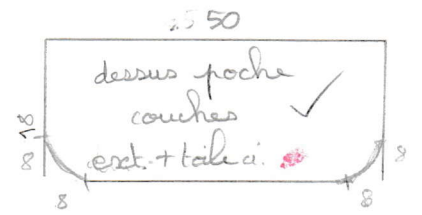 50
dessus poche
couches
18
ext. + toile ci.
8
8
8
8